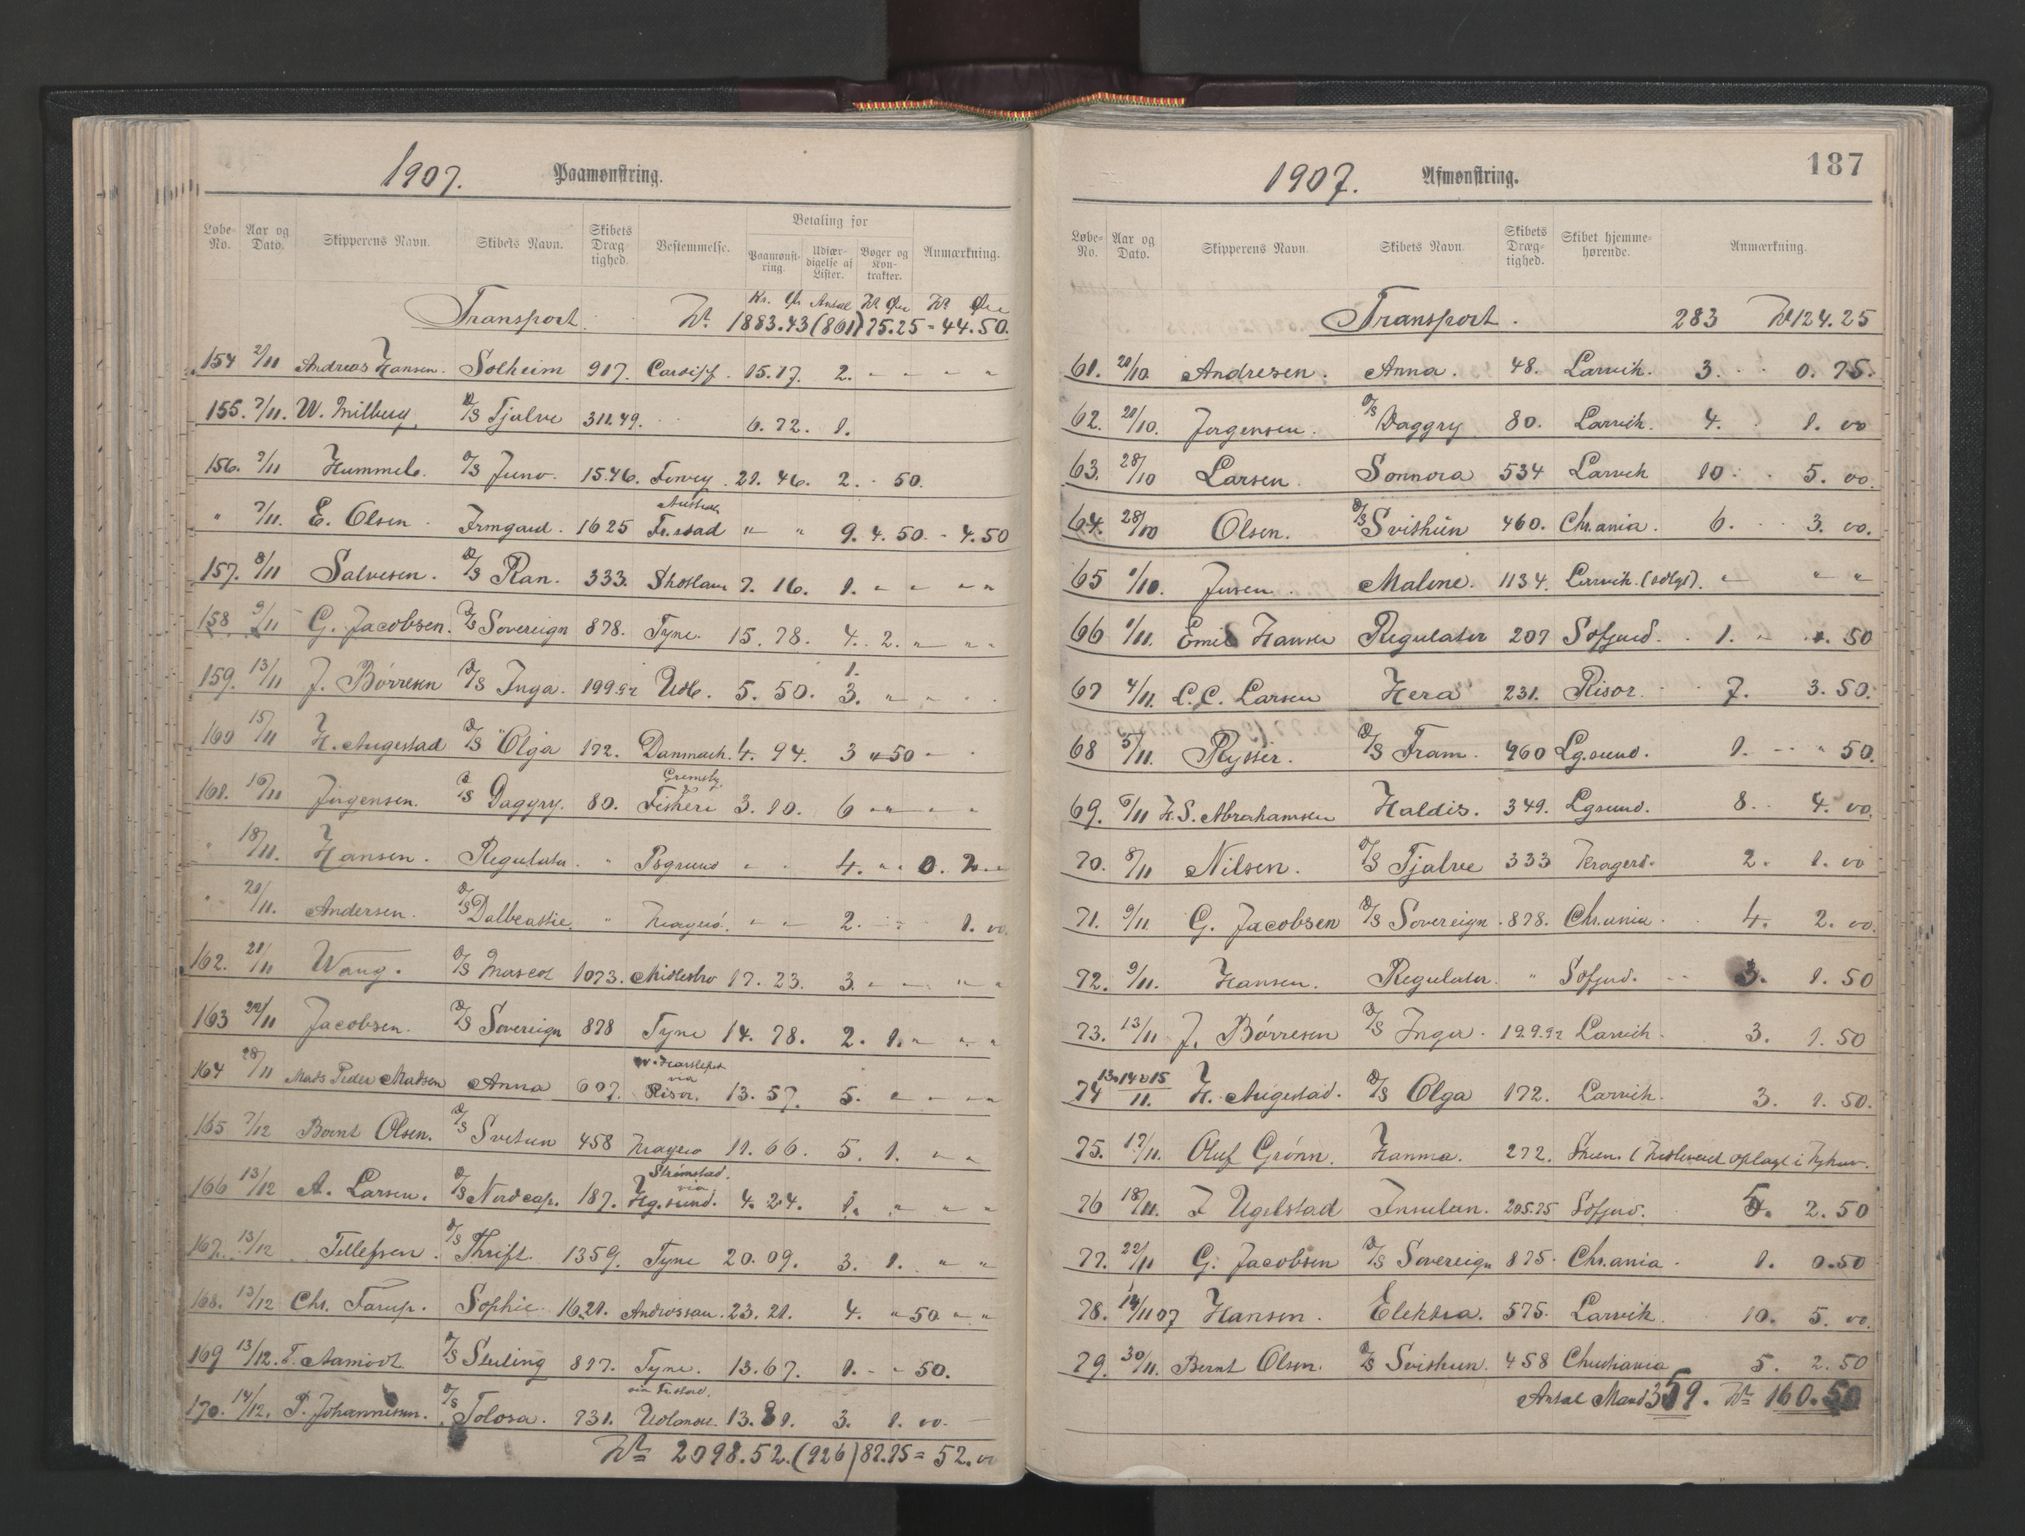 1907. Paamønstring.
Løbe-No. Aar og Dato. Skipperens Navn. Skibets Navn. Skibets Dræg-tighed. Bestemmelse. Betaling for Paamønst-ring. Udfær-digelse af Lister. Bøger og Kon-trakter. Anmærkning.
Kr. Ør Antal Kr Øre Kr Øre
Transport. Kr. 1883.43 (861) 75.25 = 44.50.
154 2/11 Andreas Hansen. Solheim 917. Cardiff. 15.17. 2. " " " "
155. 7/11. W. Milberg. D/S Tjalve 311.49. 6.72. 1.
156. 7/11 Hummel. D/S Juno. 1546. Torvey. 21.46. 2. . 50.
" 7/11. E. Olsen. Irmgard. 1625 Australi Fr.stad " " 9. 4.50. - 4.50
157. 8/11 Salvesen. D/S Ran. 333. Skotland 7.16. 1. " " " "
158 9/11 G. Jacobsen. D/S Sovereign 878. Tyne. 15.78. 4. 2. " " "
159. 13/11 J. Börresen D/S Inga. 199.92 Udl. 5.50. 1. 3. " " "
160 15/11 H. Augestad D/S Olga 172. Danmark. 4.94. 3 " 50 " "
161. 16/11 Jörgensen. D/S Daggry. 80. Gremsby Fiskeri 3.10. 6 " " " "
" 18/11. Hansen. Regulator. " Psgrund " " 4. " " 0.
" 20/11. Andersen. D/S Dalbeattie. " Kragerö. " " 2. 1.00.
162. 21/11 Wang. D/S Mascot 1073. Midlesbro 17.23. 3. " " " "
163 22/11 Jacobsen. D/S Sovereign 878 Tyne 14.78. 2. 1. " " "
164 28/11 Mads Peder Madsen Anna 607. via Risör. 13.57. 5. " " " "
165 7/12 Bernt Olsen. D/S Svitun 458 Kragerö 11.66. 5. 1. " "
166 13/12 A. Larsen. D/S Nordcap. 187. Strömstad. via Hg.sund. 4.24. 1. " " "
167. 13/12 Tellefsen. D/S Thrift. 1359. Tyne 20.09. 3. 1. " "
168. 13/12 Chr. Tarup. Sophie. 1621. Androssan. 23.21. 4. " 50 " "
169 13/12. T. Aamodt. D/S Sterling 827. Tyne. 13.67. 1. - " 50.
170. 14/12. P. Johannesen. D/S Tolosa. 731. via Frstad. Udlandet. 13.81. 3. 1.00.
Kr 2098.52. (926) 82.75 = 52.00
187
1907. Afmønstring.
Løbe-No. Aar og Dato. Skipperens Navn. Skibets Navn. Skibets Dræg-tighed. Skibet hjemme-hørende. Anmærkning.
Transport. 283 Kr 124.25
61. 20/10 Andresen. Anna. 48. Larvik. 3. 0.75.
62. 21/10. Jörgensen. D/S Daggry 80. Larvik 4. 1.00
63. 28/10 Larsen. Sonnora 534 Larvik 10 5.00.
64. 28/10 Olsen. D/S Svithun 460. Chr.ania. 6. 3.00.
65 1/10. Malone. 1134. Larvik. (solgt). " " "
66 1/11. Emil Hansen Regulator 207 S.fjord. 1. " ". 50
67 4/11. L. C. Larsen Hera 231. Risör. 7. 3.50.
68 5/11. D/S Fram. 960 Lg.sund. 1. " 50.
69. 6/11 H. S. Abrahamsen Haldis. 349. Lgsund. 8. 4.00.
70. 8/11 Nilsen. D/S Tjalve 333 Kragerö. 2. 1.00
71. 9/11 G. Jacobsen D/S Sovereign. 878. Chr.ania. 4. 2.00.
72. 9/11. Hansen. Regulator. " S.fjord. 3. 1.50
73. 13/11 J. Börresen D/S Inga. 199.92 Larvik. 3. 1.50
74 13.14 & 15/11. H. Augestad. D/S Olga 172. Larvik. 3. 1.50.
75. 17/11. Oluf Grönn. Hanna. 272. Skien. oplagt i
76 18/11. J Ugelstad Insulan. 205.75 S.fjord. 5. 2.50
77. 22/11 G. Jacobsen D/S Sovereign 875. Chr.ania. 1. 0.50
78. 14/11 07 Hansen. Elektra. 575. Larvik. 10. 5.00.
79. 30/11. Bernt Olsen. D/S Svithun. 458 Christiania 5. 2.50
Antal Mand 359. Kr 160.50